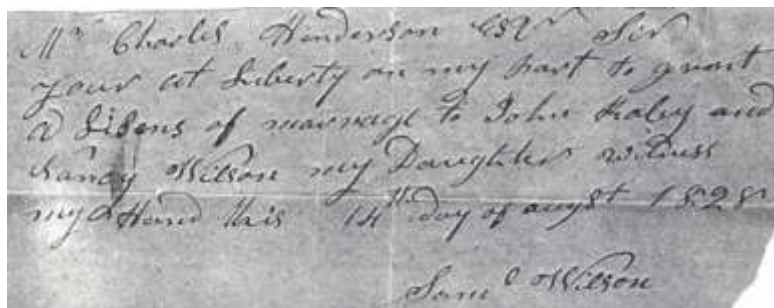 Mr Charles Henderson Esqr Sir
your at Liberty on my part to grant
a Lisens of marriage to John Raley and
Nancy Wilson my Daughter witness
my Hand this 14th day of augst 1828
Saml Wilson